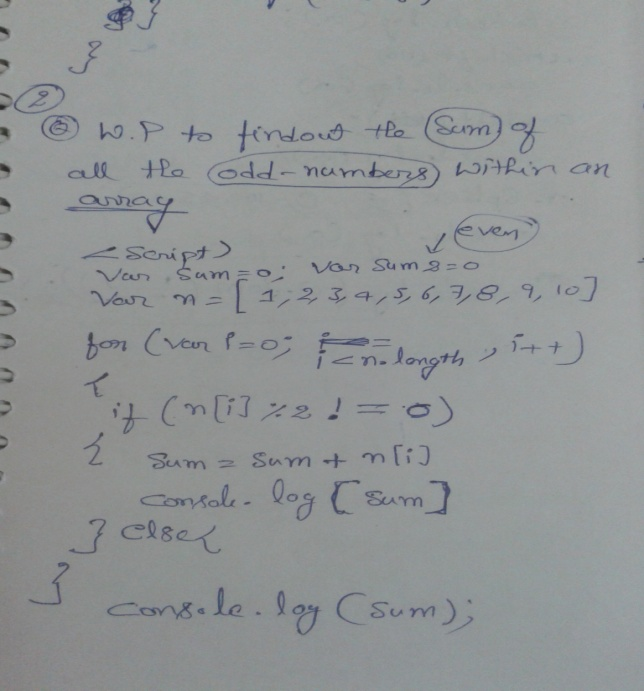 }
}
2
Q W.P to findout the Sum of
all the odd-numbers within an
array
even
<Script>
Var sum=0; Var Sum2=0
Var n=[1,2,3,4,5,6,7,8,9,10]
for (var i=0; i<n.length, i++)
{
if (n[i] %2 != 0)
{ Sum = Sum + n[i]
console.log [Sum]
} else{
}
console.log (Sum);